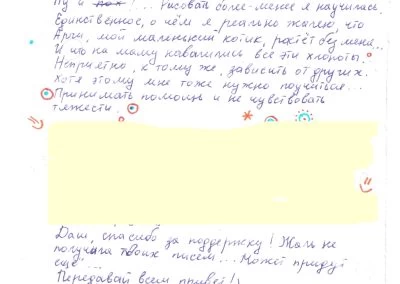 Ну и пох!... Рисовать более-менее я научилась.
Единственное, о чём я реально жалею, что
Арчи, мой маленький котик, растёт без меня...
И что на маму навалились все эти хлопоты.
Неприятно, к тому же, зависить от других.
Хотя этому мне тоже нужно поучиться...
Принимать помощь и не чувствовать
тяжести.
Даш, спасибо за поддержку! Жаль не
получила твоих писем... Может придут
ещё...
Передавай всем привет!)